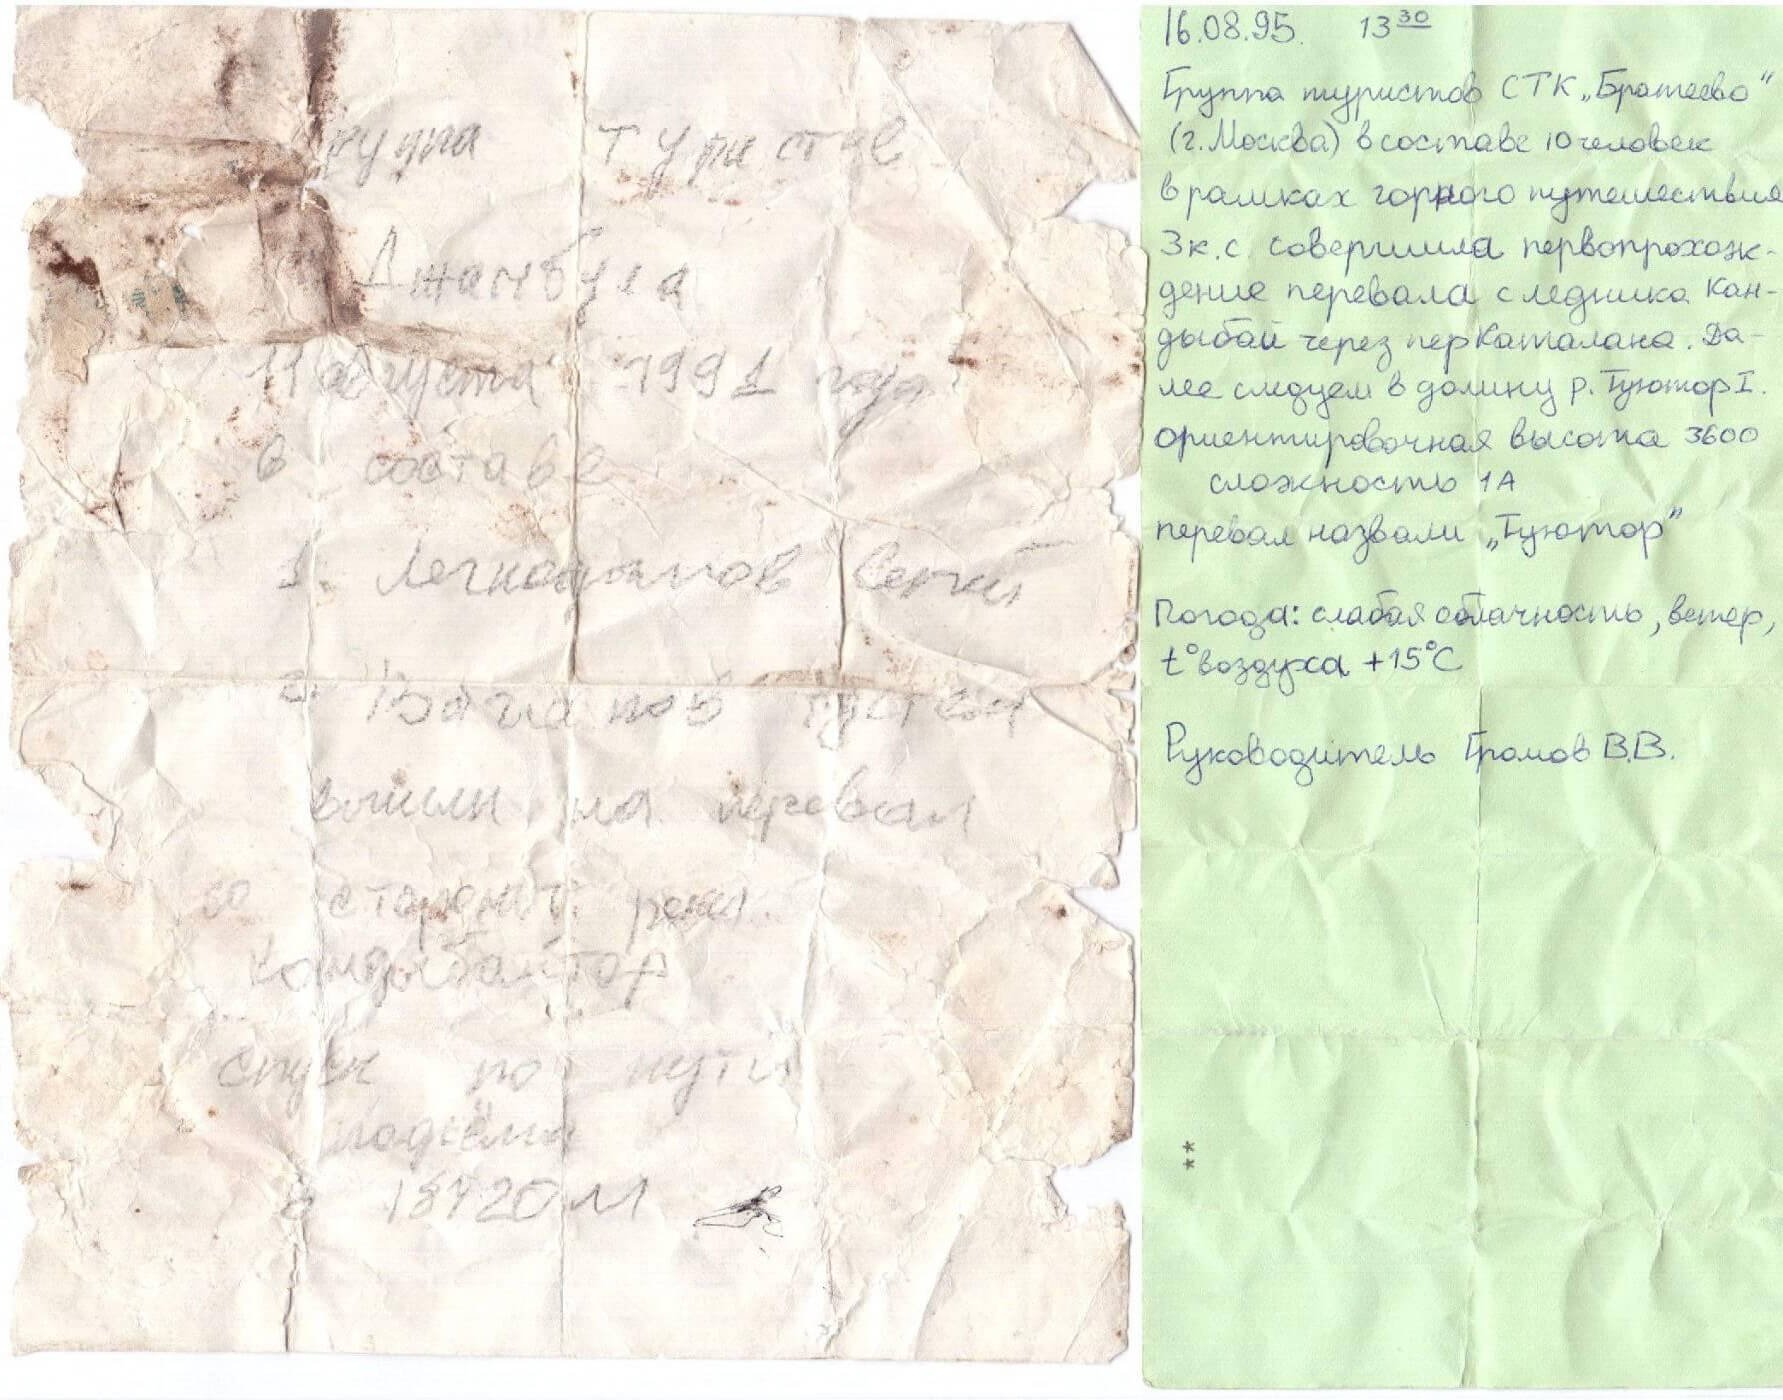 руппа туристов
Джамбула
11 августа 1991 года
в составе
1.
2.
вышли на перевал
со стороны реки
Кандыбайтор
спуск по пути
подъёма
в 18 ч 20 м
16.08.95. 13 30
Группа туристов СТК „Братеево“
(г. Москва) в составе 10 человек
в рамках горного путешествия
3 к.с. совершила первопрохож-
дение перевала с ледника Кан-
дыбай через пер Каталана. Да-
лее следуем в долину р. Туютор I.
ориентировочная высота 3600
сложность 1А
перевал назвали „Туютор“
Погода: слабая облачность, ветер,
t° воздуха +15°C
Руководитель Громов В.В.
**